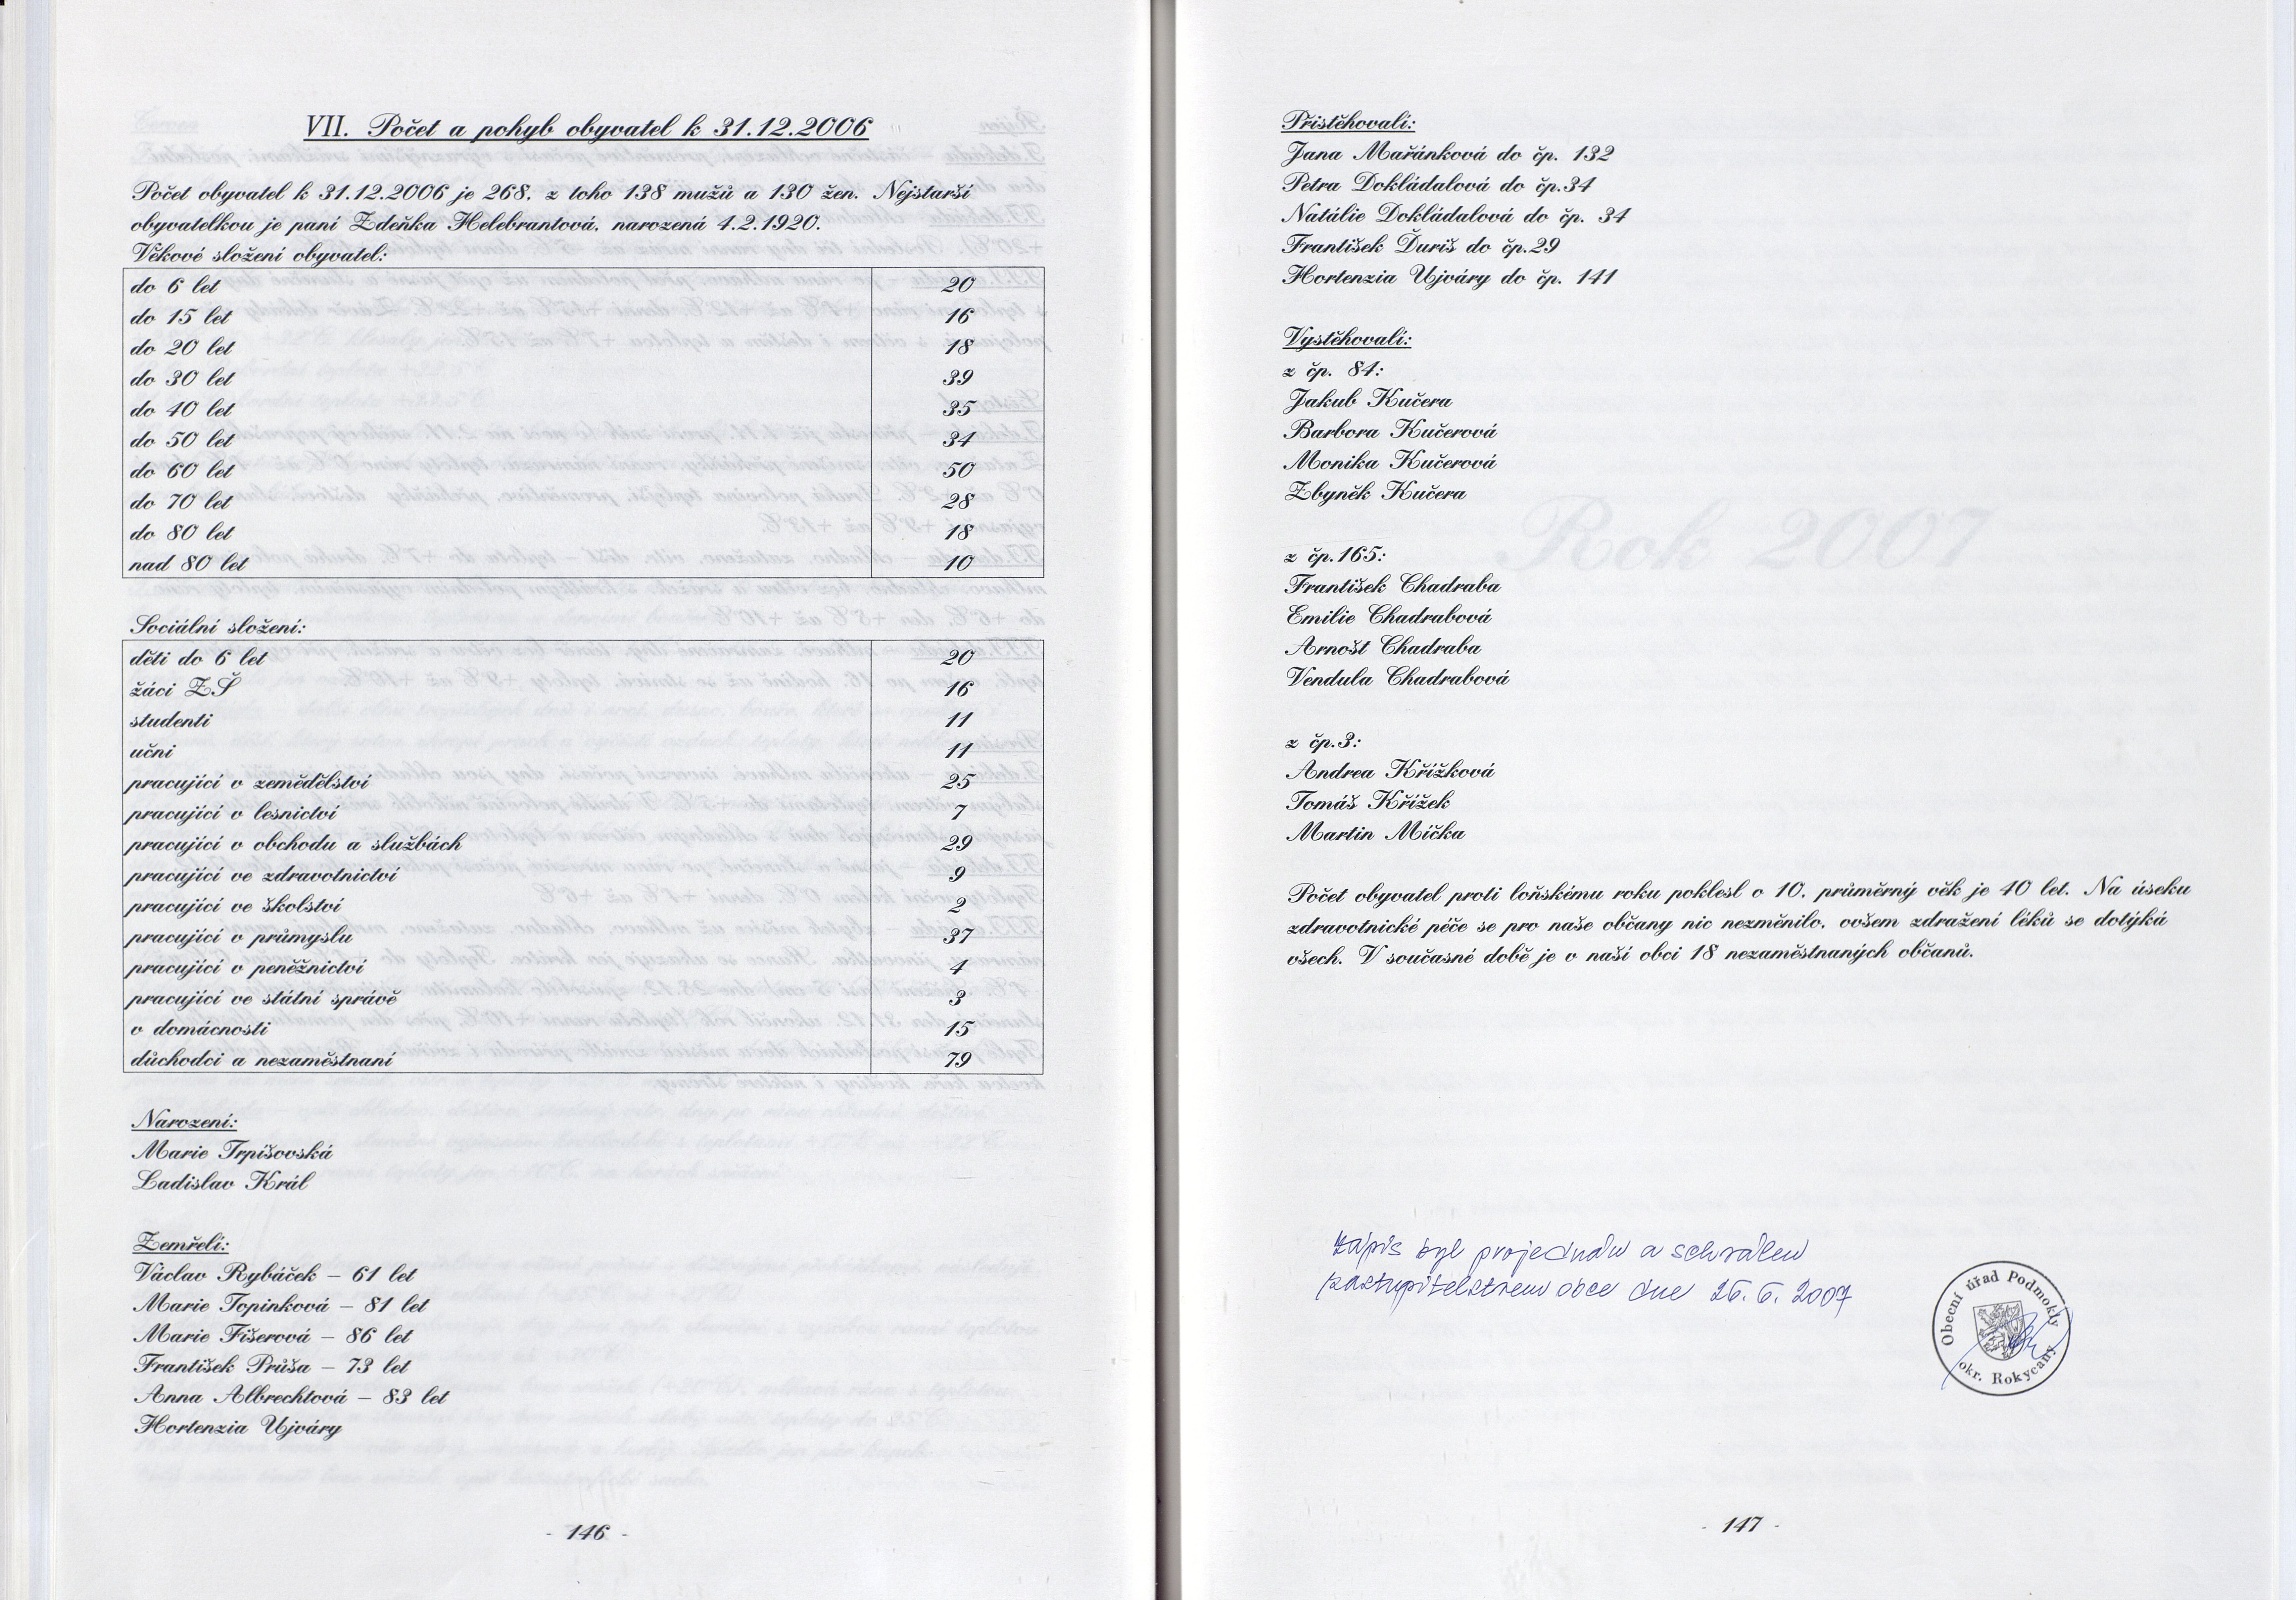 VII. Počet a pohyb obyvatel k 31.12.2006
Počet obyvatel k 31.12.2006 je 268, z toho 138 mužů a 130 žen. Nejstarší
obyvatelkou je paní Zdeňka Helebrantová, narozená 4.2.1920.
Věkové složení obyvatel:
do 6 let 20
do 15 let 16
do 20 let 18
do 30 let 39
do 40 let 35
do 50 let 34
do 60 let 50
do 70 let 28
do 80 let 18
nad 80 let 10
Sociální složení:
děti do 6 let 20
žáci ZŠ 16
studenti 11
učni 11
pracující v zemědělství 25
pracující v lesnictví 7
pracující v obchodu a službách 29
pracující ve zdravotnictví 9
pracující ve školství 2
pracující v průmyslu 37
pracující v peněžnictví 4
pracující ve státní správě 3
v domácnosti 15
důchodci a nezaměstnaní 79
Narození:
Marie Trpišovská
Ladislav Král
Zemřelí:
Václav Rybáček – 61 let
Marie Topinková – 81 let
Marie Fišerová – 86 let
František Průša – 73 let
Anna Albrechtová – 83 let
Hortenzia Ujváry
- 146 -
Přistěhovalí:
Jana Mařánková do čp. 132
Petra Dokládalová do čp.34
Natálie Dokládalová do čp. 34
František Ďuriš do čp.29
Hortenzia Ujváry do čp. 141
Vystěhovalí:
z čp. 84:
Jakub Kučera
Barbora Kučerová
Monika Kučerová
Zbyněk Kučera
z čp.165:
František Chadraba
Emilie Chadrabová
Arnošt Chadraba
Vendula Chadrabová
z čp.3:
Andrea Křížková
Tomáš Křížek
Martin Míčka
Rok 2007
Počet obyvatel proti loňskému roku poklesl o 10, průměrný věk je 40 let. Na úseku
zdravotnické péče se pro naše občany nic nezměnilo, ovšem zdražení léků se dotýká
všech. V současné době je v naší obci 18 nezaměstnaných občanů.
Zápis byl projednán a schválen
zastupitelstvem obce dne 26. 6. 2007
Obecní úřad Podmokly
okr. Rokycany
- 147 -